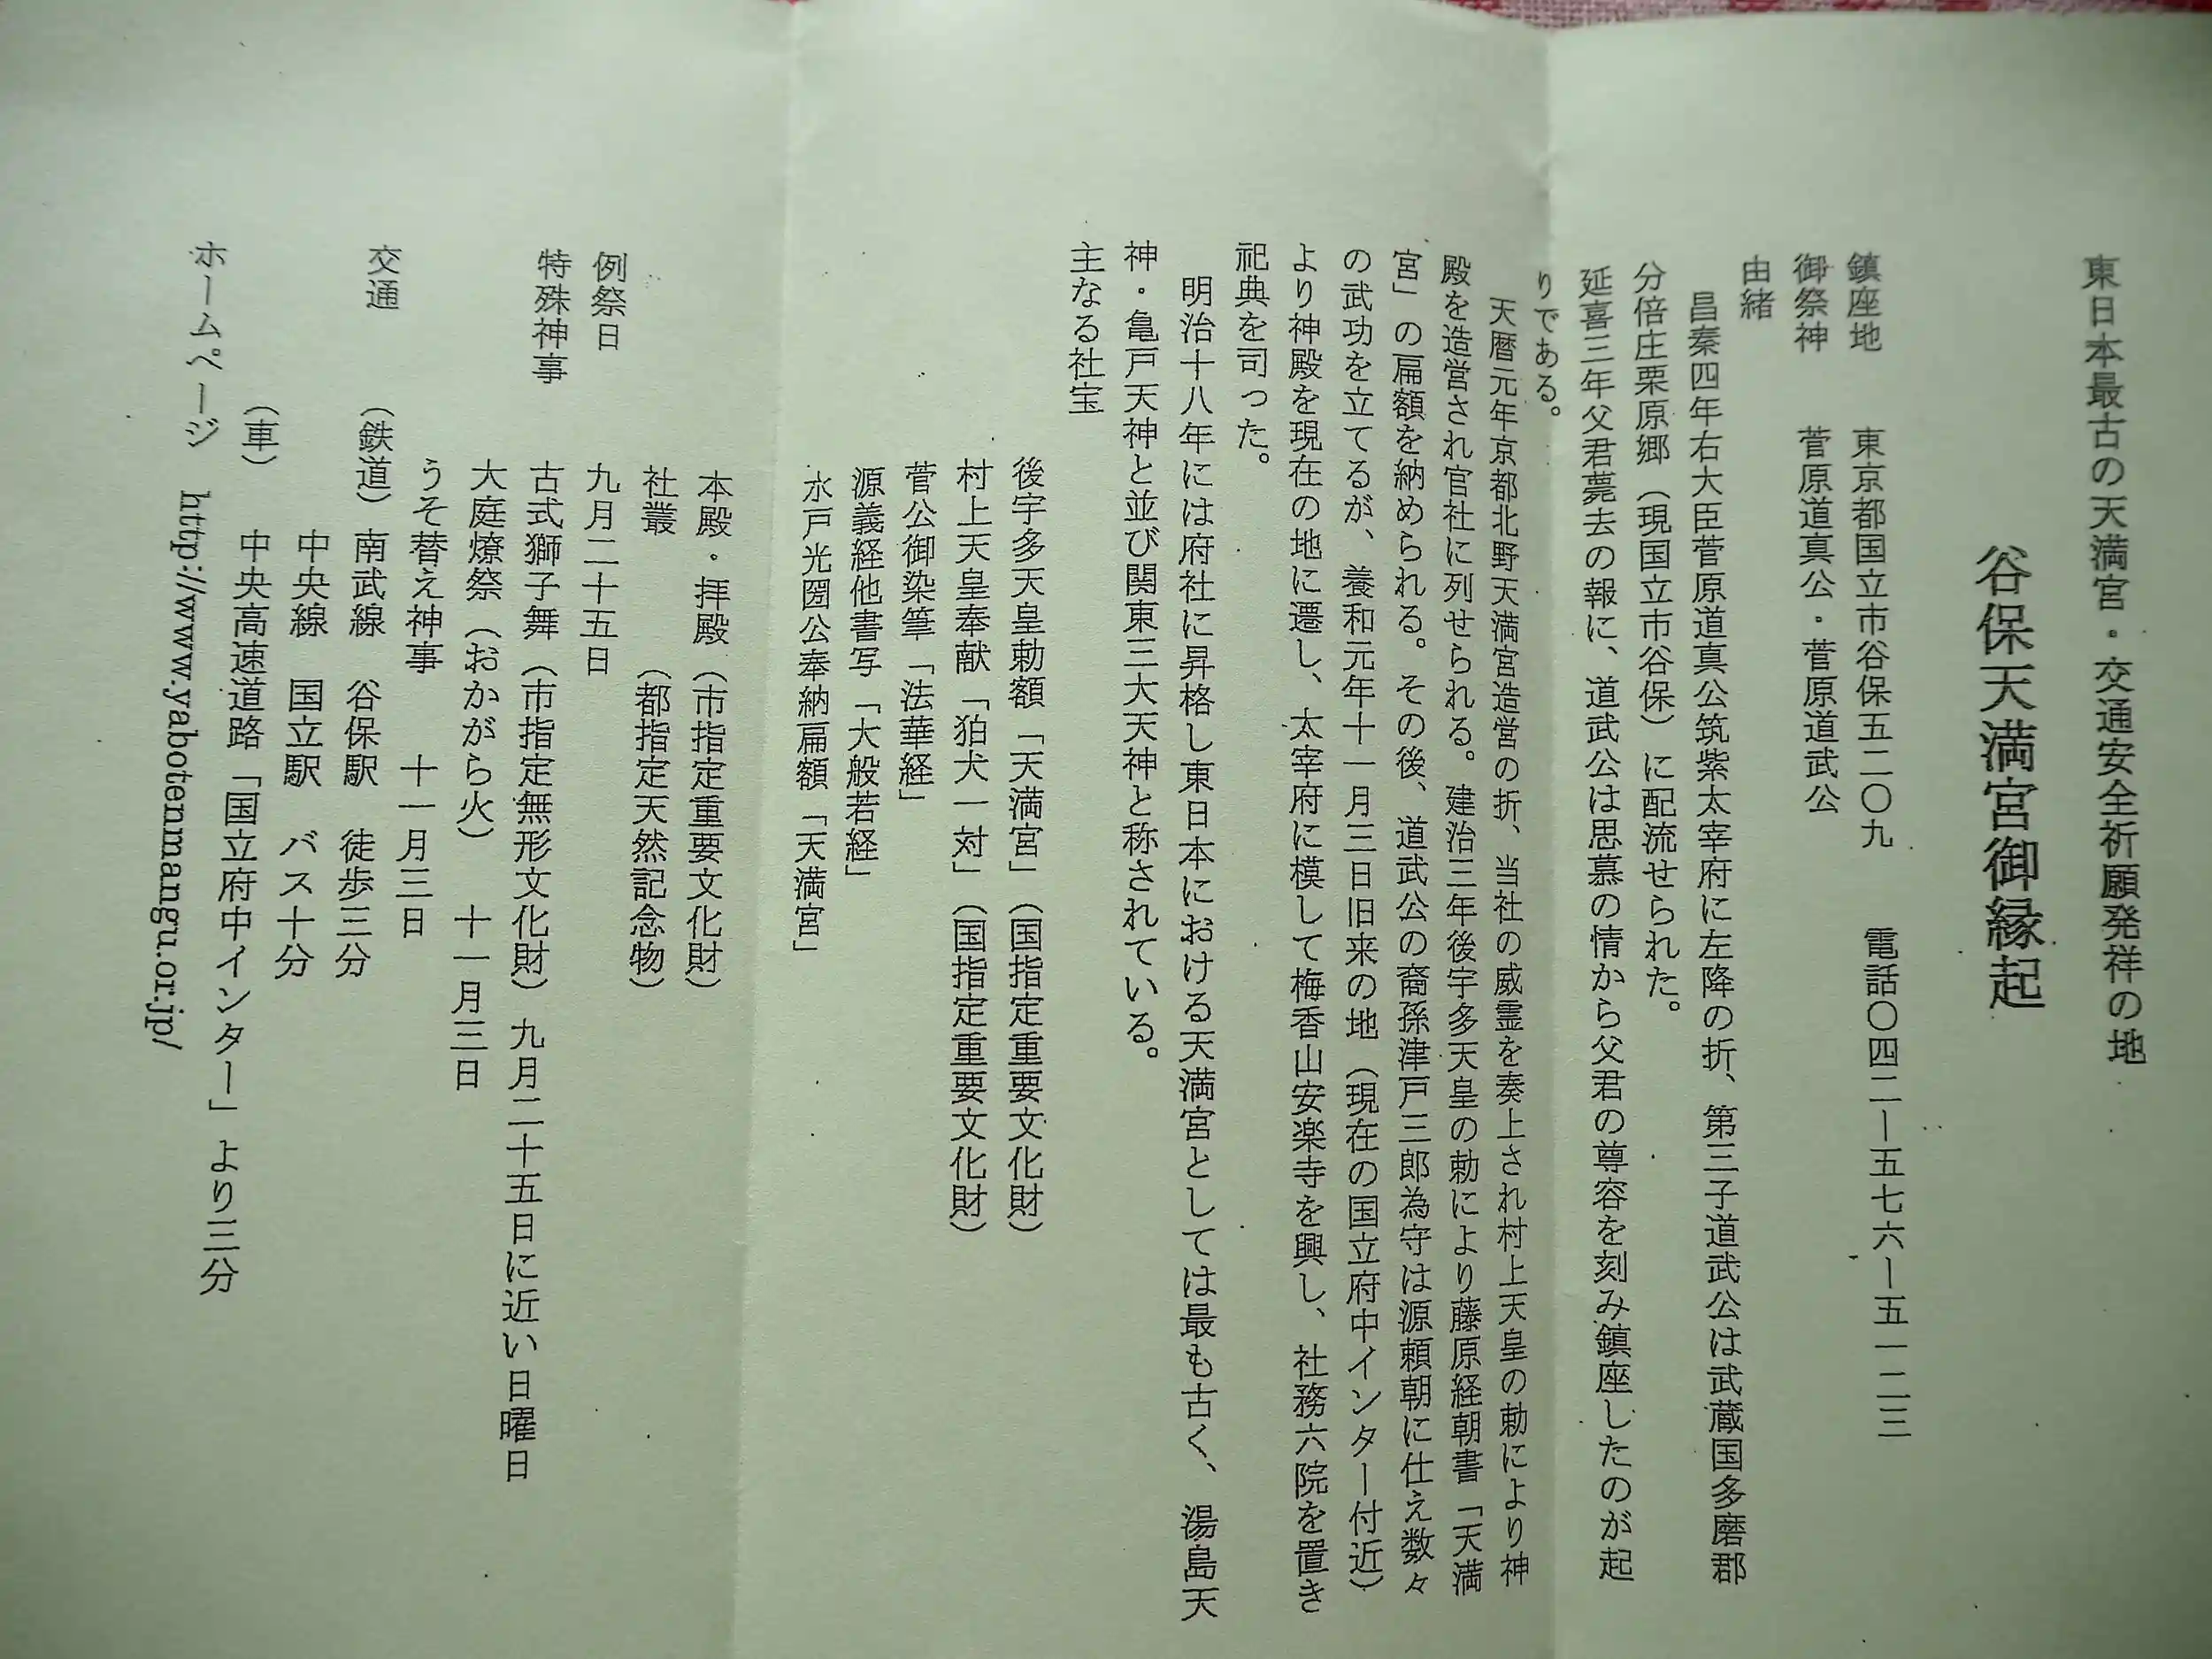 東日本最古の天満宮・交通安全祈願発祥の地
谷保天満宮御縁起
鎮座地　東京都国立市谷保五二〇九　電話〇四二ー五七六ー五一二三
御祭神　菅原道真公・菅原道武公
由緒
昌泰四年右大臣菅原道真公筑紫太宰府に左降の折、第三子道武公は武蔵国多磨郡
分倍庄栗原郷（現国立市谷保）に配流せられた。
延喜三年父君薨去の報に、道武公は思慕の情から父君の尊容を刻み鎮座したのが起
りである。
天暦元年京都北野天満宮造営の折、当社の威霊を奏上され村上天皇の勅により神
殿を造営され官社に列せられる。建治三年後宇多天皇の勅により藤原経朝書「天満
宮」の扁額を納められる。その後、道武公の裔孫津戸三郎為守は源頼朝に仕え数々
の武功を立てるが、養和元年十一月三日旧来の地（現在の国立府中インター付近）
より神殿を現在の地に遷し、太宰府に模して梅香山安楽寺を興し、社務六院を置き
祀典を司った。
明治十八年には府社に昇格し東日本における天満宮としては最も古く、湯島天
神・亀戸天神と並び関東三大天神と称されている。
主なる社宝
後宇多天皇勅額「天満宮」（国指定重要文化財）
村上天皇奉献「狛犬一対」（国指定重要文化財）
菅公御染筆「法華経」
源義経他書写「大般若経」
水戸光圀公奉納扁額「天満宮」
本殿・拝殿（市指定重要文化財）
社叢　（都指定天然記念物）
例祭日　九月二十五日
特殊神事　古式獅子舞（市指定無形文化財）九月二十五日に近い日曜日
大庭燎祭（おかがら火）　十一月三日
うそ替え神事　十一月三日
交通　（鉄道）南武線　谷保駅　徒歩三分
中央線　国立駅　バス十分
（車）　中央高速道路「国立府中インター」より三分
ホームページ　http://www.yabotenmangu.or.jp/